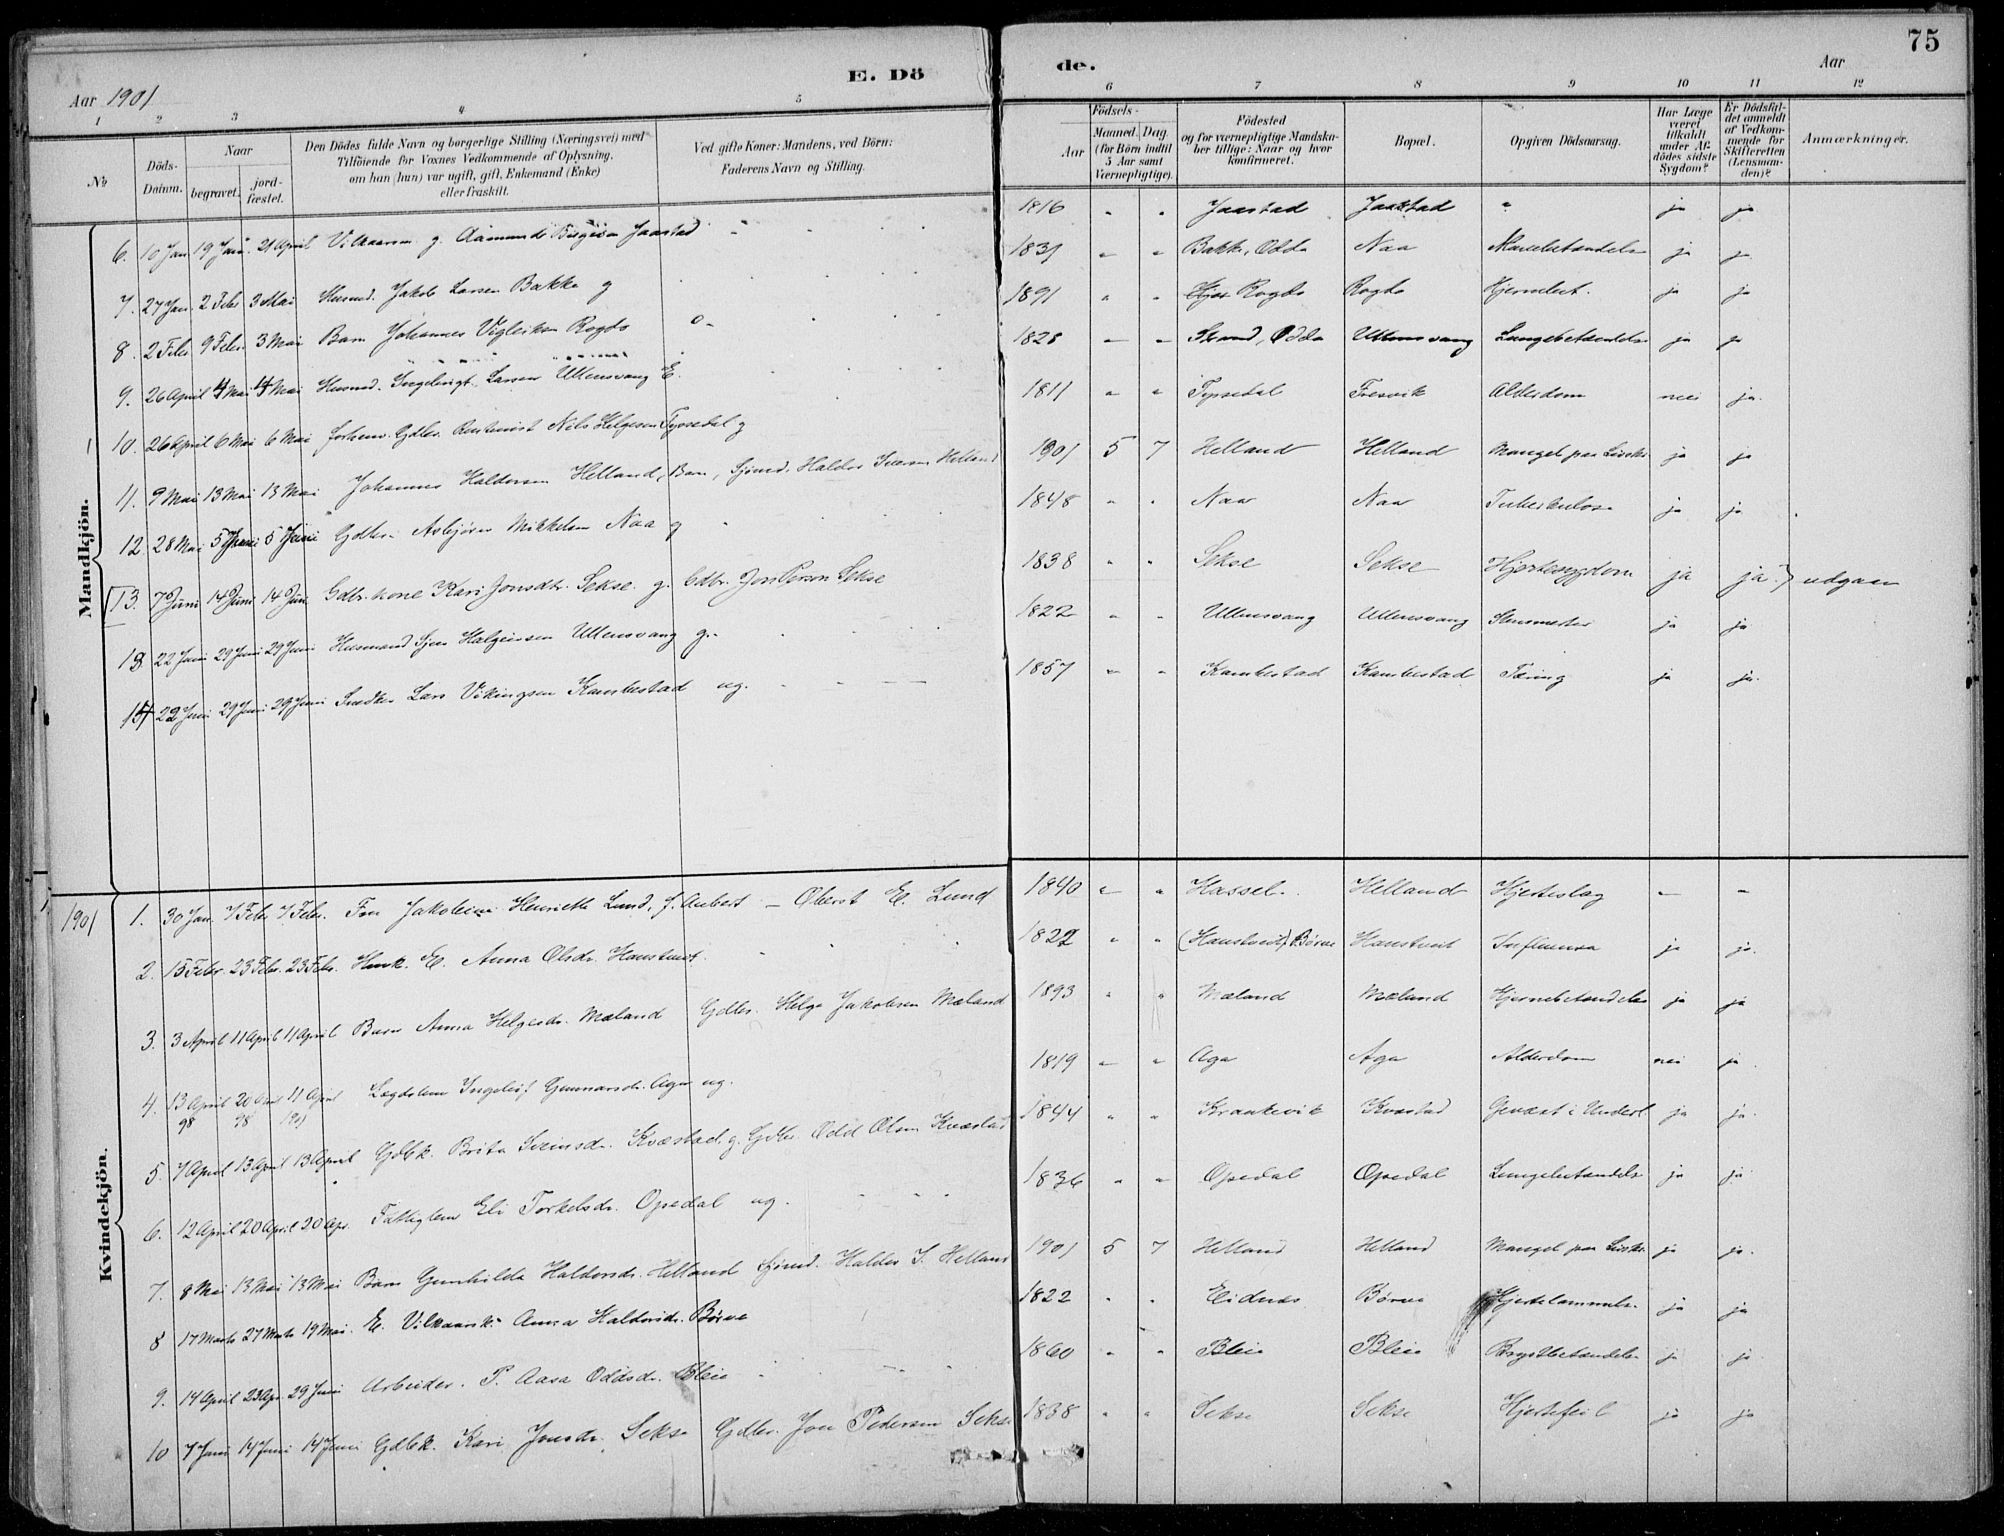 75
E. Dö de.
Aar 1901 Aar
1 2 3 4 5 6 7 8 9 10 11 12
№
Döds-Datum.
Naar
begravet.
jord-fæstet.
Den Dödes fulde Navn og borgerlige Stilling (Næringsvei) med Tilföiende for Voxnes Vedkommende af Oplysning, om han (hun) var ugift, gift, Enkemand (Enke) eller fraskilt.
Ved gifte Koner: Mandens, ved Börn: Faderens Navn og Stilling.
Födsels-
Aar
Maaned. Dag.
(for Börn indtil 5 Aar samt Værnepligtige).
Födested og for værnepligtige Mandskaber tillige: Naar og hvor konfirmeret.
Bopæl.
Opgiven Dödsaarsag.
Har Læge været tilkaldt under Afdödes sidste Sygdom?
Er Dödsfaldet anmeldt af Vedkommende for Skifteretten (Lensmanden)?
Anmærkninger.
Mandkjön.
6. 10 Jan 19 Jan. 21 April Vilkaarsm g. Aamund Jaastad 1816 " " Jaastad Jaastad " ja ja
7. 27 Jan 2 Febr 3 Mai Husmd. Jakob Larsen Bakke g 1831 " " Bakke, Odda Naa ja ja
8. 2 Febr 9 Febr. 3 Mai Barn Johannes Vigleiksen Rogde 1891 " " Rogde Rogde Hjernebet. ja ja
9. 26 April 4 Mai 4 Mai Husmd. Ingebrigt Larsen Ullensvang E. 1828 " " Strand, Odda Ullensvang Lungebetændelse ja ja
10. 26 April 6 Mai 6 Mai forhenv. Gdbr. Nils Helgesen Tyssedal g 1811 " " Tyssedal Fresvik Alderdom nei ja.
11. 9 Mai 13 Mai 13 Mai Johannes Haldorsen Helland, Barn, Sjömd. Haldor Iversen Helland 1901 5 7 Helland Helland Mangel paa Livskr. ja ja
12. 28 Mai 5 Juni 5 Juni Gdbr. Asbjørn Mikkelsen Naa g 1848 " " Naa Naa Tuberkulose ja ja
13. 7 Juni 14 Juni 14 Juni Gdbr. kone Kari Jonsdtr. Sekse. g. Gdbr. Jon Person Sekse 1838 " " Sekse Sekse Hjertesygdom ja ja? udgaar
13. 22 Juni 29 Juni 29 Juni Husmand Sjur Ullensvang g. 1822 " " Ullensvang Ullensvang ja ja
14 22 Juni 29 Juni 29 Juni Snedker Lars Vikingsen Kambestad ug. 1857 " " Kambestad Kambestad Tæring ja ja.
Kvindekjön.
1901 1. 30 Jan. 7 Febr. 7 Febr. Fru Jakobine Henriette Lund, f. Aubert – Oberst E. Lund 1840 " " Hassel. Helland Hjerteslag – –
2. 15 Febr. 23 Febr. 23 Febr. Husk. E. Anna Olsdr. Haustveit. 1822 " " (Haustveit) Børve Haustveit Influensa ja ja.
3. 3 April 11 April 11 April Barn Anna Helgesdr. Mæland Gdbr. Helge Jakobsen Mæland 1893 " " Mæland Mæland Hjernebetændelse ja ja
4. 13 April 98 20 April 98 11 April 1901 Lægdslem Ingeleif Gunnarsdr. Aga ug. 1819 " " Aga Aga Alderdom nei ja
5. 7 April 13 April 13 April Gdbk. Brita Sveinsdr. Kvæstad. g. Gdbr. Odd Olsen Kvæstad 1844 " " Krankevik Kvæstad Gevæxt i Underl ja ja.
6. 12 April 20 April 20 Apr. Fattiglem Eli Torkelsdr. Opedal ug. 1836 " " Opedal Opedal Lungebetændelse ja ja
7. 8 Mai 13 Mai 13 Mai Barn Gunhilda Haldorsdr. Helland Sjömd. Haldor I. Helland 1901 5 7 Helland Helland Mangel paa Livskr. ja ja.
8 17 Marts 27 Marts 19 Mai. E. Vilkaarsk. Anna Haldorsdr. Børve 1822 " " Eidnes Børve Hjertelammelse. ja ja
9. 14 April 23 Apr. 29 Juni Arbeider. P. Aasa Oddsdr. Bleie 1860 " " Bleie Bleie Brystbetændelse ja ja.
10 7 Juni 14 Juni 14 Juni Gdbk. Kari Jonsdr. Sekse Gdbr. Jon Pedersen Sekse 1838 " " Sekse Sekse Hjertefeil ja ja